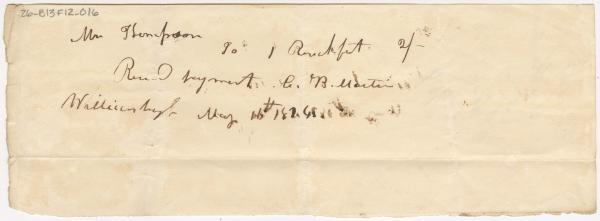 26-B13F12-016
Mr Thompson
To 1 2/-
Recd payment C. B. Martin
Williamsburgh May 16th